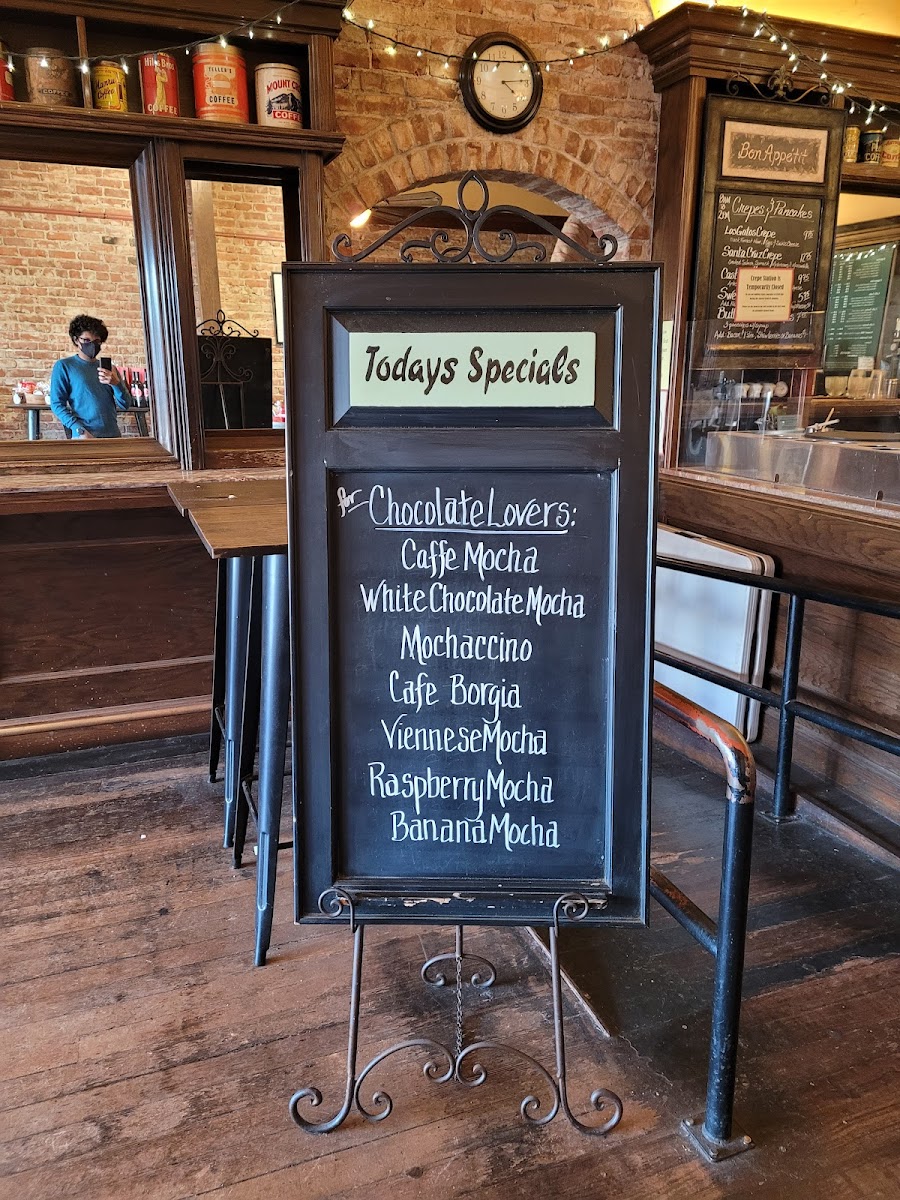 Hills Bros
COFFEE
TELLER'S
COFFEE
MOUNT
COFFEE
Bon Appétit
8AM
to
2PM
Crepes & Pancakes
Los Gatos Crepe
Santa Cruz Crepe
Crepe Station is
Temporarily Closed
Todays Specials
for Chocolate Lovers:
Caffe Mocha
White Chocolate Mocha
Mochaccino
Cafe Borgia
Viennese Mocha
Raspberry Mocha
Banana Mocha